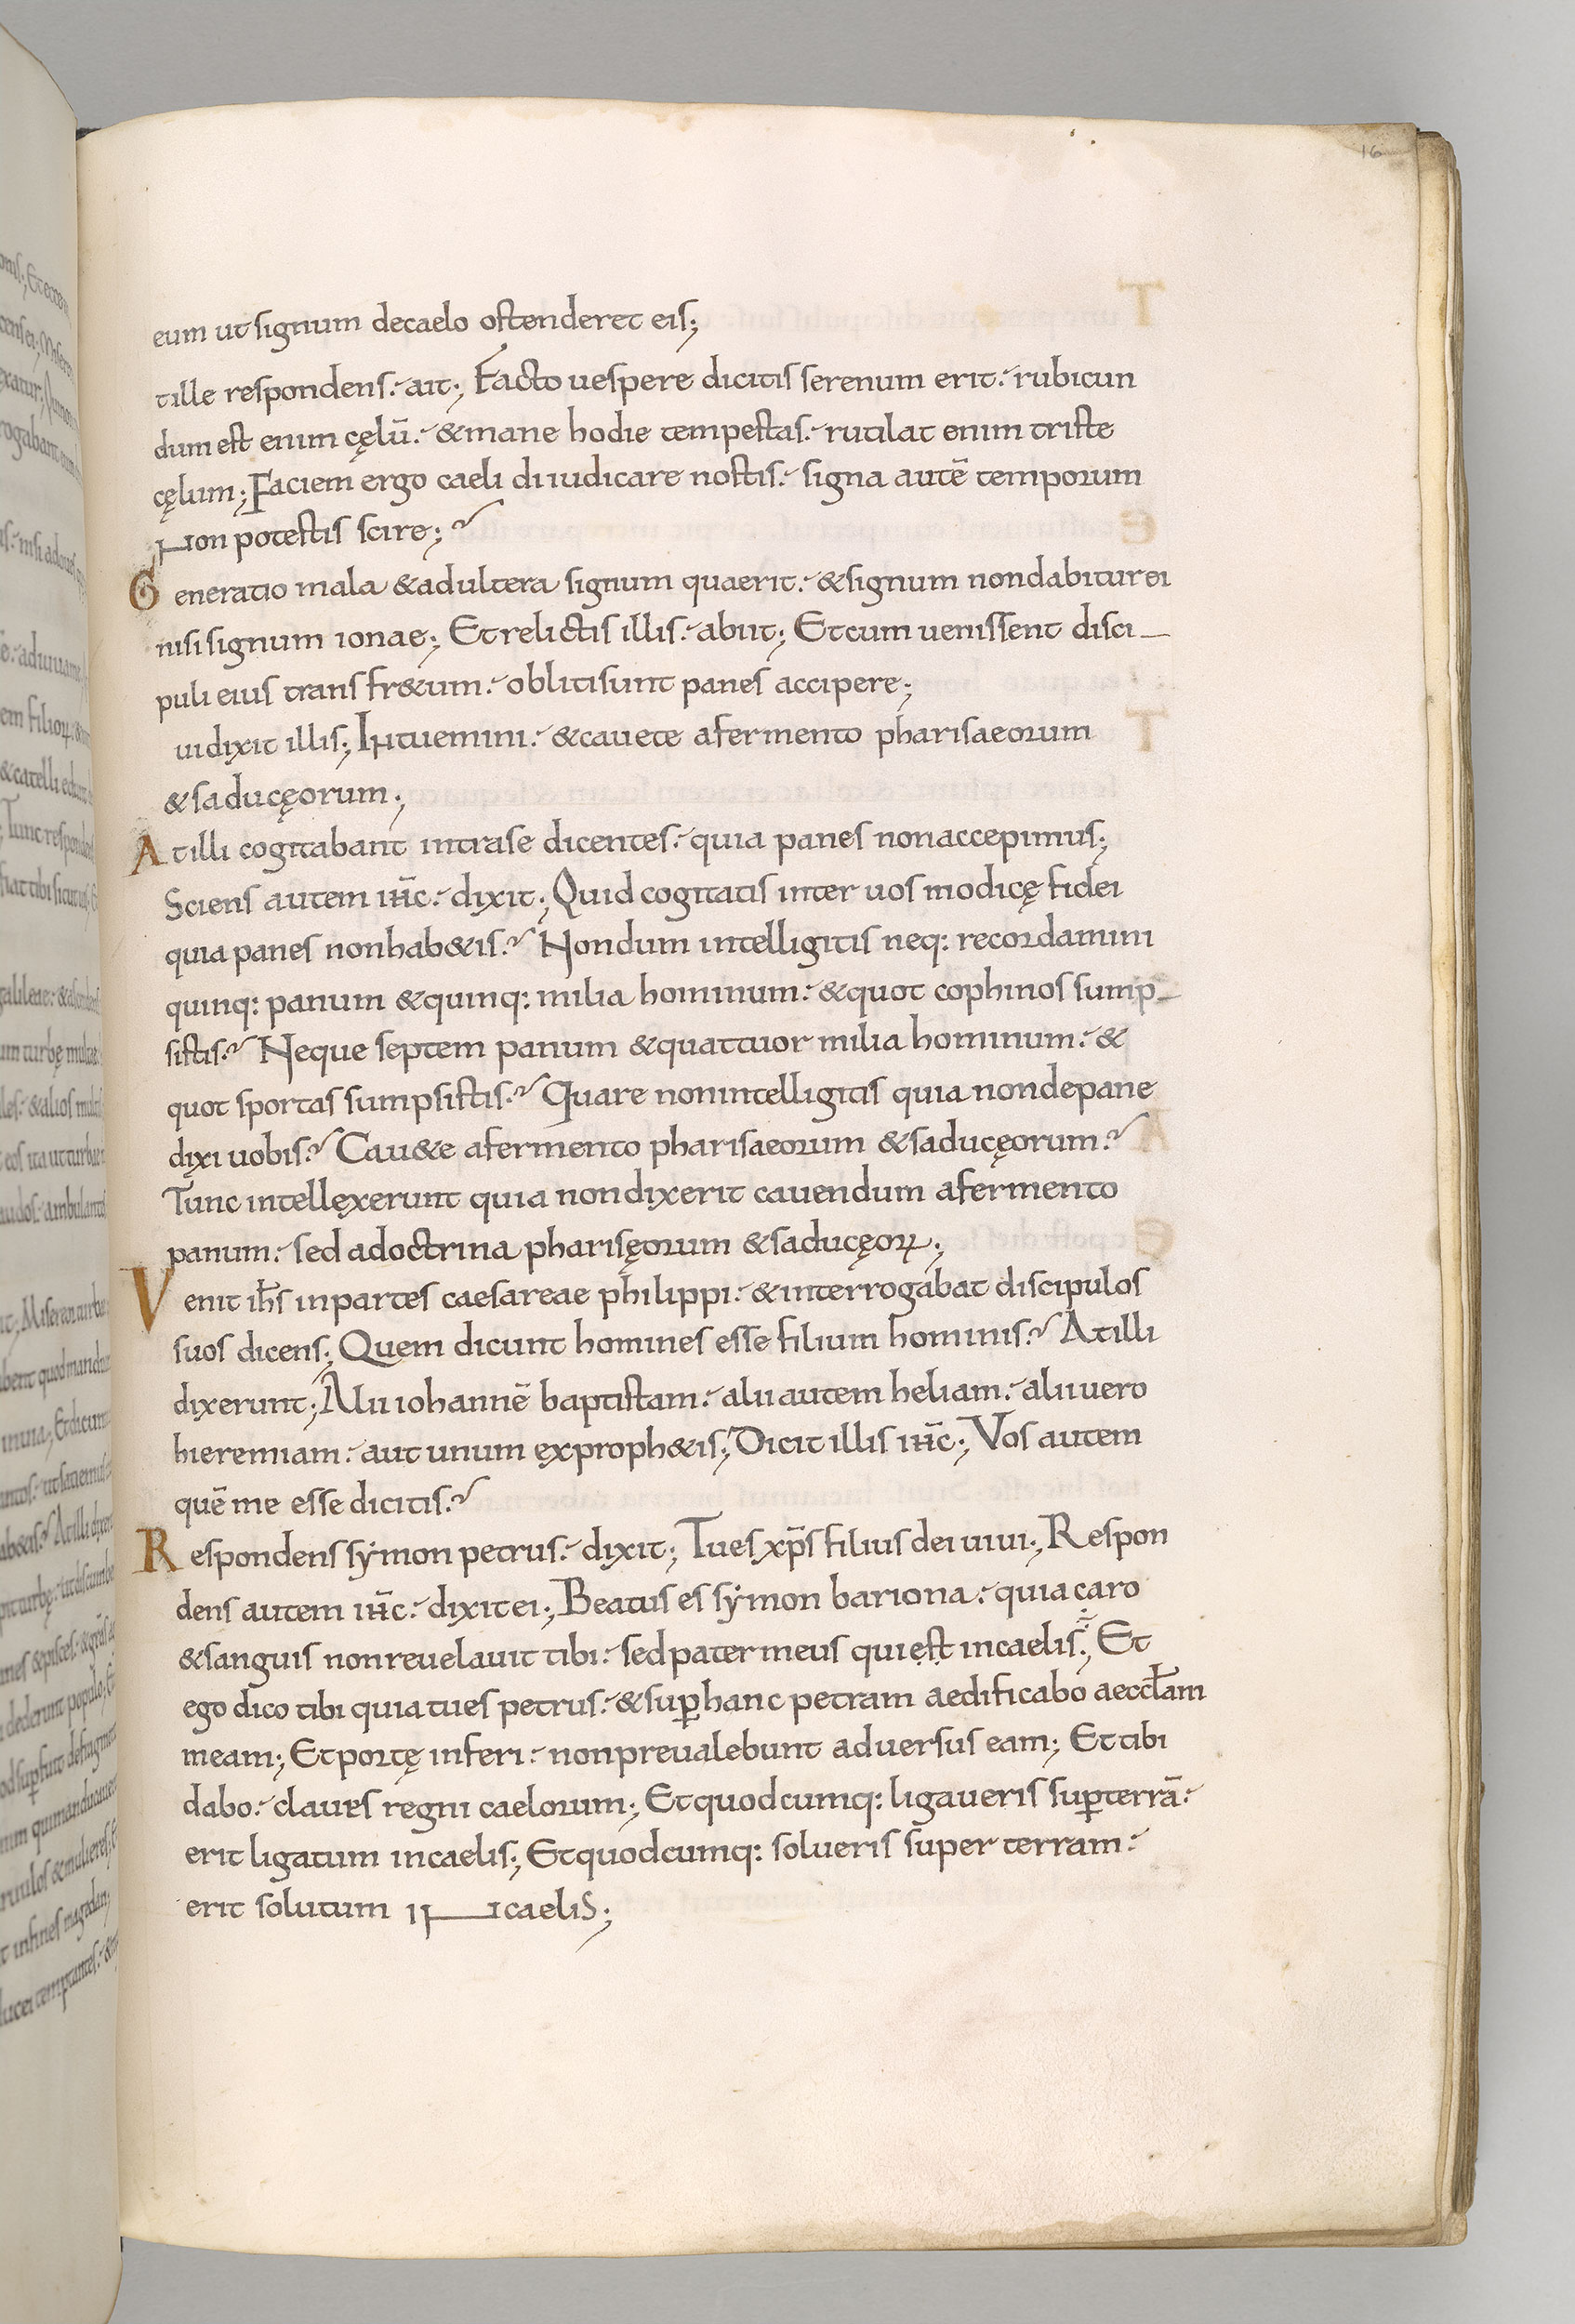 16
eum ut signum decaelo ostenderet eis;
tille respondens. ait; Facto uespere dicitis serenum erit. rubicun
dum est enim cęlū. &mane hodie tempestas. rutilat enim triste
cęlum; Faciem ergo caeli diiudicare nostis. signa autē temporum
Non potestis scire;
Generatio mala &adultera signum quaerit. &signum nondabitur ei
nisi signum ionae; Et relictis illis. abiit; Et cum uenissent disci_
puli eius trans fr&um. obliti sunt panes accipere;
ui dixit illis; Intuemini. &cauete afermento pharisaeorum
&saducęorum;
Atilli cogitabant intrase dicentes. quia panes nonaccepimus;
Sciens autem iħc. dixit; Quid cogitatis inter uos modicę fidei
quia panes nonhab&is? Nondum intelligitis neq: recordamini
quinq: panum &quinq: milia hominum. &quot cophinos sump_
sistis? Neque septem panum &quattuor milia hominum. &
quot sportas sumpsistis? Quare nonintelligitis quia nondepane
dixi uobis? Cau&e afermento pharisaeorum &saducęorum?
Tunc intellexerunt quia nondixerit cauendum afermento
panum. sed adoctrina pharisęorum &saducęoꝝ;
Venit iħs inpartes caesareae philippi. &interrogabat discipulos
suos dicens; Quem dicunt homines esse filium hominis? Atilli
dixerunt; Alii iohannē baptistam. alii autem heliam. alii uero
hieremiam. aut unum exproph&is; Dicit illis iħc; Vos autem
quē me esse dicitis?
Respondens sẏmon petrus. dixit; Tu es xp̄s filius dei uiui; Respon
dens autem iħc. dixit ei; Beatus es sẏmon bariona. quia caro
&sanguis nonreuelauit tibi. sed pater meus qui est incaelis; Et
ego dico tibi quia tu es petrus. &suꝑ hanc petram aedificabo aeccƚam
meam; Et portę inferi. nonpreualebunt aduersus eam; Et tibi
dabo. claues regni caelorum; Et quodcumq: ligaueris suꝑ terrā.
erit ligatum incaelis; Et quodcumq: solueris super terram.
erit solutum iNcaelis;